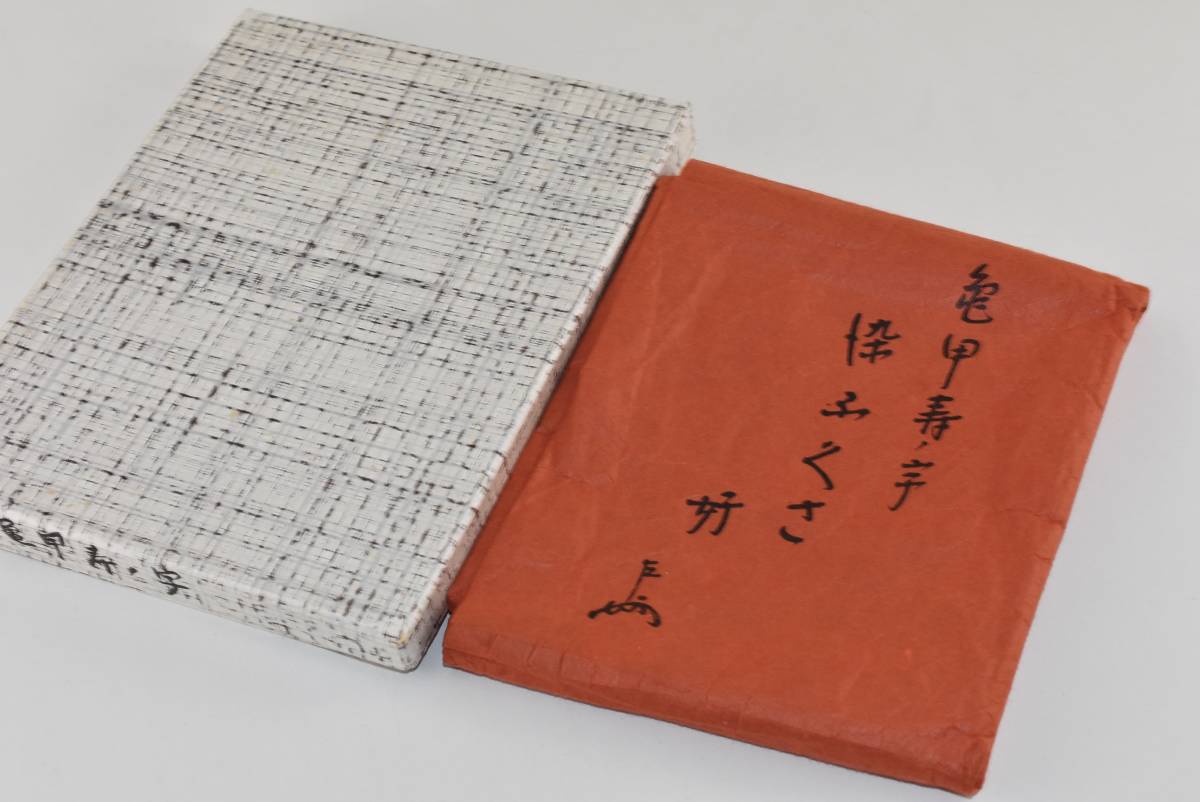 亀甲寿ノ字
染ふくさ
好
亀甲寿ノ字